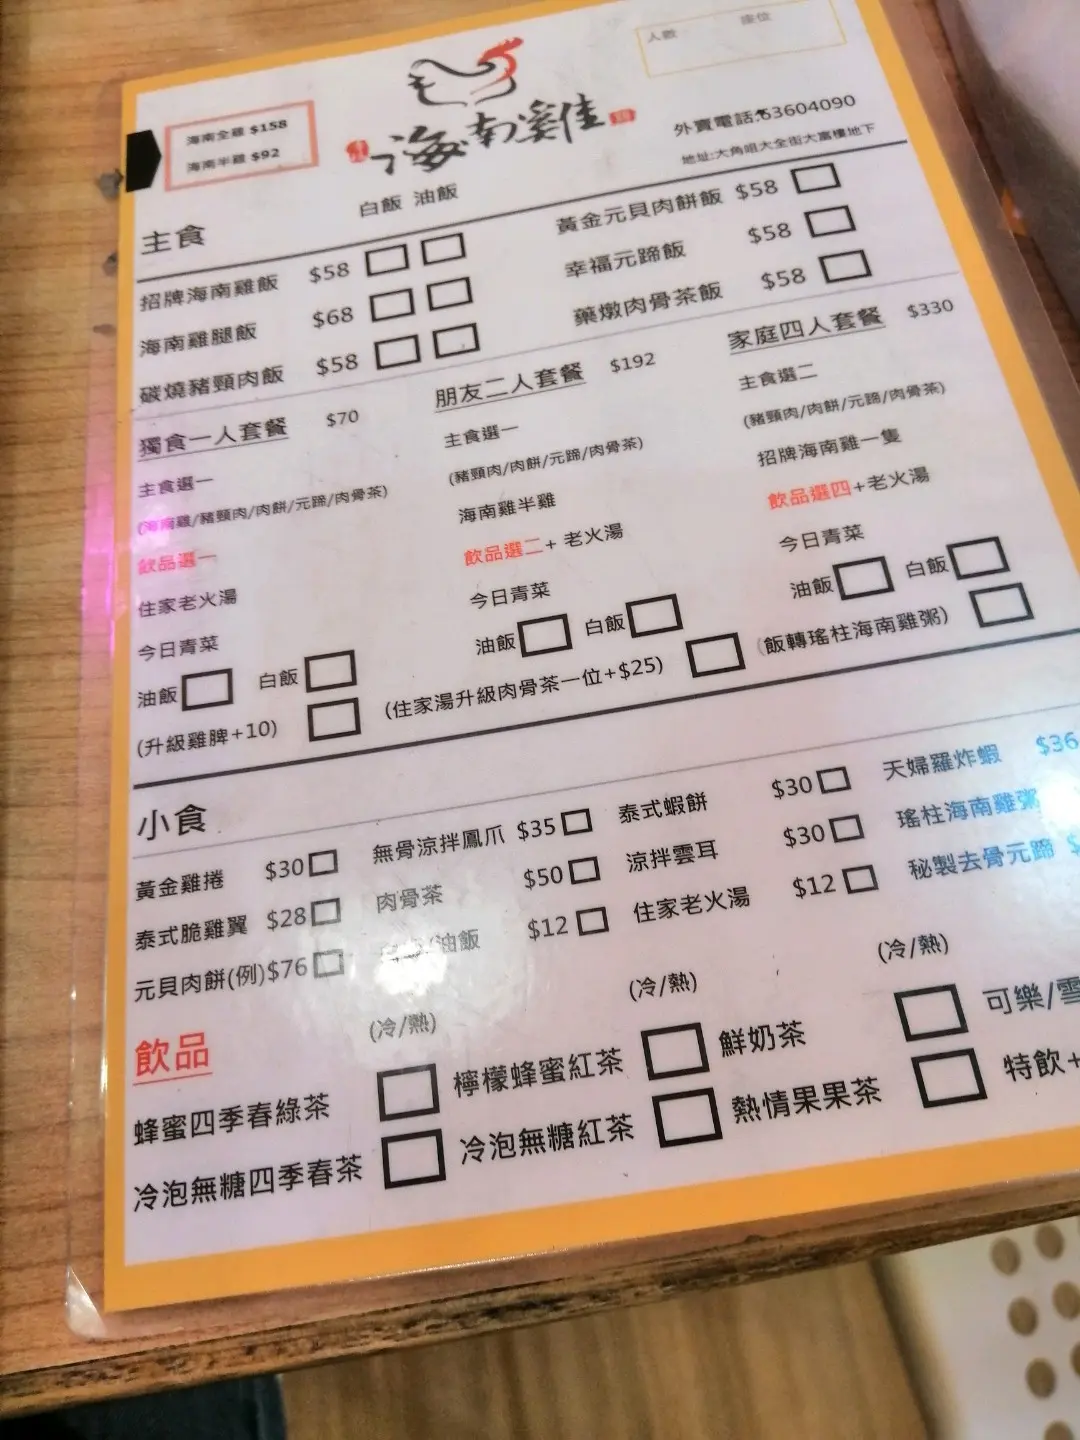 人數 座位
海南全雞 $158
海南半雞 $92
海南雞佳
外賣電話:53604090
地址:大角咀大全街大富樓地下
主食 白飯 油飯
招牌海南雞飯 $58
海南雞腿飯 $68
碳燒豬頸肉飯 $58
黃金元貝肉餅飯 $58
幸福元蹄飯 $58
藥燉肉骨茶飯 $58
獨食一人套餐 $70
主食選一
(海南雞/豬頸肉/肉餅/元蹄/肉骨茶)
飲品選一
住家老火湯
今日青菜
油飯 白飯
(升級雞脾+10)
朋友二人套餐 $192
主食選一
(豬頸肉/肉餅/元蹄/肉骨茶)
海南雞半雞
飲品選二+ 老火湯
今日青菜
油飯 白飯
(住家湯升級肉骨茶一位+$25)
家庭四人套餐 $330
主食選二
(豬頸肉/肉餅/元蹄/肉骨茶)
招牌海南雞一隻
飲品選四+老火湯
今日青菜
油飯 白飯
(飯轉瑤柱海南雞粥)
小食
黃金雞捲 $30
泰式脆雞翼 $28
元貝肉餅(例)$76
無骨涼拌鳳爪 $35
肉骨茶 $50
/油飯 $12
泰式蝦餅 $30
涼拌雲耳 $30
住家老火湯 $12
天婦羅炸蝦 $36
瑤柱海南雞粥
秘製去骨元蹄 $
飲品 (冷/熱) (冷/熱) (冷/熱)
蜂蜜四季春綠茶 檸檬蜂蜜紅茶 鮮奶茶 可樂/雪
冷泡無糖四季春茶 冷泡無糖紅茶 熱情果果茶 特飲+